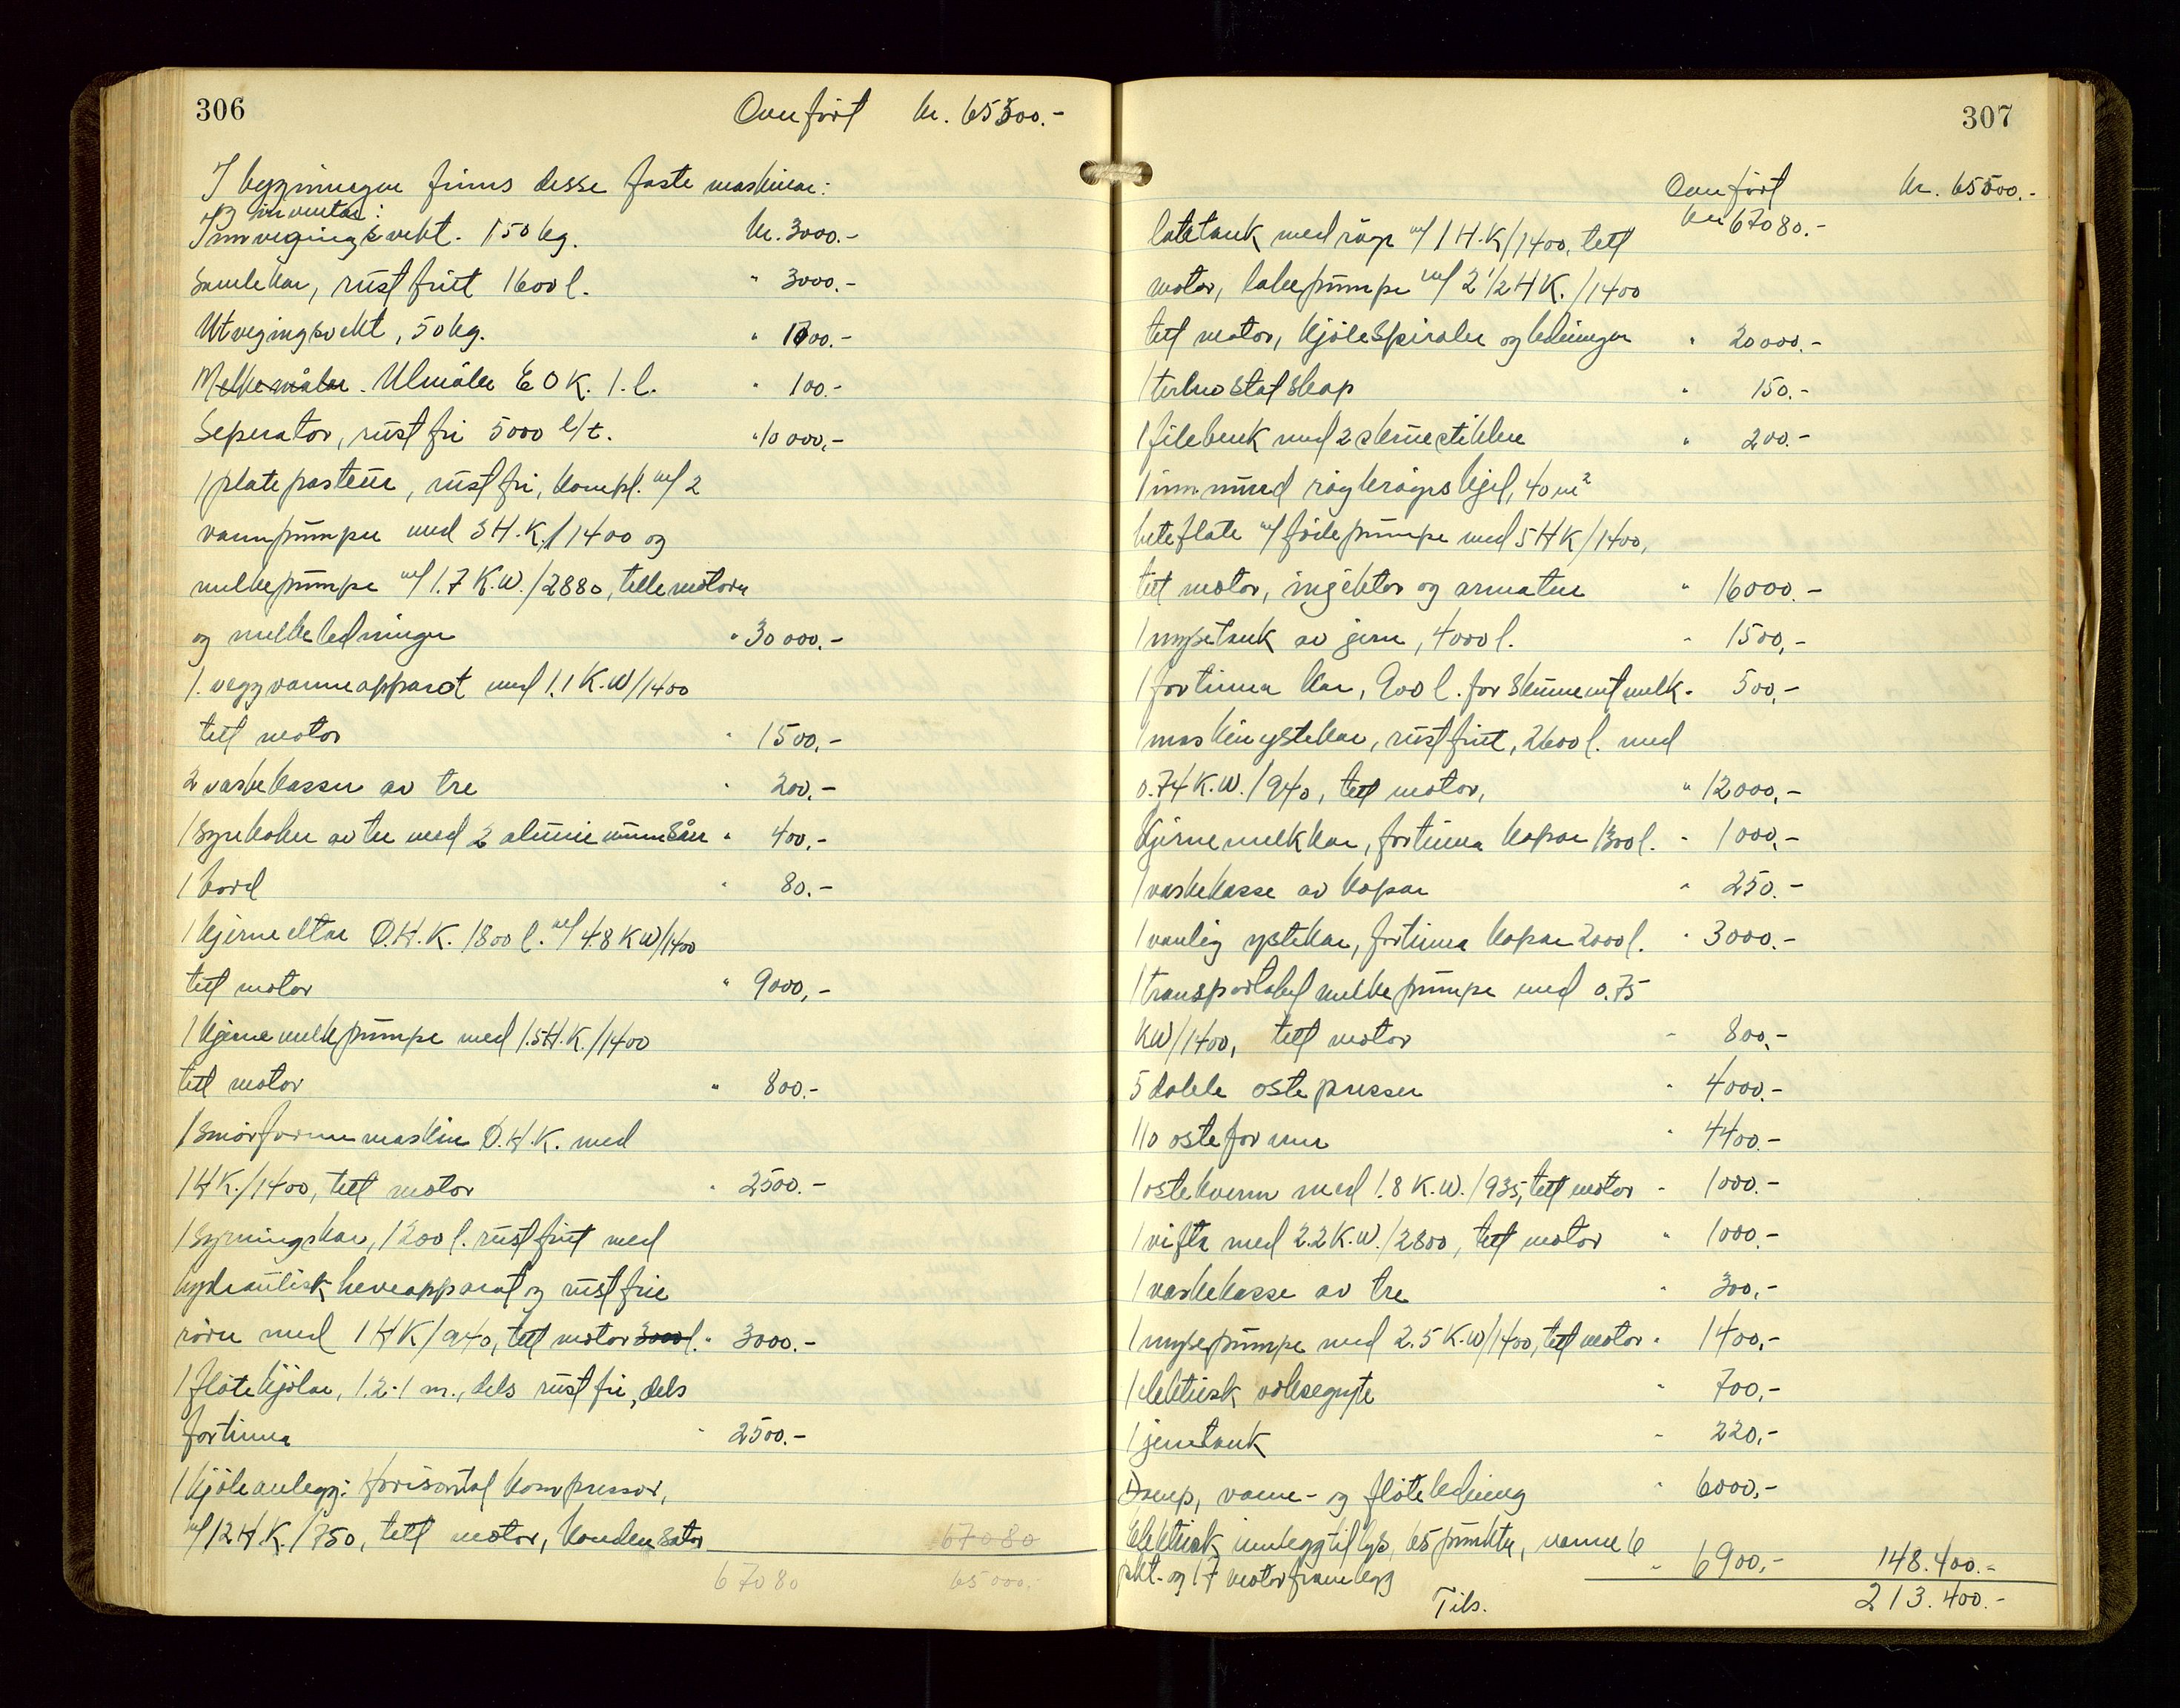 306
Overført kr. 65500.-
I bygningen finns desse faste maskinar:
og inventar:
Innvegingsvekt. 150 kg. kr. 3000.-
Samlekar, rustfritt 1600 l. " 3000.-
Utvegingsvekt, 50 kg. "
Melkemåler. Ulmåler E O K. 1. l. " 100.-
Seperator, rustfri 5000 l/t. " 10 000,-
1 plate pasteur, rustfri, kompl. m/ 2
vannpumper med 3 H.K./1400 og
melkepumpe m/ 1.7 K.W./2880, tette motorer
og melkeledninger " 30 000.-
1. veggvarmeapparat med 1.1 K.W/1400
tett motor " 1500.-
2 vaskekasser av tre " 200.-
1 syrekoker av tre med 2 aluminiumsåer " 400,-
1 bord " 80.-
1 kjerneeltar Ø.H.K. 1800 l. m/ 4.8 KW/1400
tett motor " 9000,-
1 kjernemelkpumpe med 1.5 H.K./1400
tett motor " 800.-
1 smørformemaskin Ø.H.K. med
1 H K./1400, tett motor " 2500.-
1 syrningskar, 1200 l. rustfritt med
hydraulisk heveapparat og rustfrie
rører med 1 H K/940, tett motor 3000 l. " 3000.-
1 fløtekjølar, 1.2·1 m., dels rustfri, dels
fortinna " 2500.-
1 kjøleanlegg: horisontal kompressor,
m/ 12 H.K./750, tett motor, kondensator
67080
67080 65000.-
307
Overført kr. 65500.-
kr. 67080.-
laketank med røre m/ 1 H.K/1400, tett
motor, lakepumpe m/ 2 1/2 H K./1400
tett motor, kjølespiraler og ledninger " 20000.-
1 termostatskap " 150.-
1 filebenk med 2 skruestikker " 200.-
1 innmurd røykrørskjel, 40 m²
heteflate m/ fødepumpe med 5 H K/1400,
tett motor, injektor og armatur " 16000.-
1 mysetank av jern, 4000 l. " 1500,-
1 fortinna kar, 900 l. for skummet melk " 500,-
1 maskinystekar, rustfritt, 2600 l. med
0.74 K.W./940, tett motor, " 12000,-
Kjernemelkkar, fortinna kopar 1300 l. " 1000,-
1 vaskekasse av kopar " 250.-
1 vanlig ystekar, fortinna kopar 2000 l. " 3000.-
1 transportabel melkepumpe med 0.75
KW/1400, tett motor " 800,-
5 doble ostepresser " 4000.-
110 osteformer " 4400.-
1 ostekvern med 1.8 K.W./935, tett motor " 1000.-
1 vifte med 2.2 K.W./2800, tett motor " 1000.-
1 vaskekasse av tre " 300,-
1 mysepumpe med 2.5 K.W/1400, tett motor " 1400,-
1 elektrisk voksegryte " 700,-
1 jerntank " 220,-
Damp, vann- og fløteledning " 6000,-
Elektrisk innlegg til lys, 65 punkter, varme 6
pkt. og 17 motorframlegg " 6900,- 148.400.-
Tils. 213.400.-